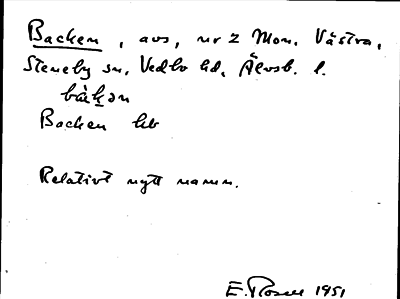 Backen, avs, nr 2 Mon, Västra,
Steneby sn, Vedbo hd, Älvsb. l.
bàkən
Backen hb
Relativt nytt namn.
E. Rosell 1951